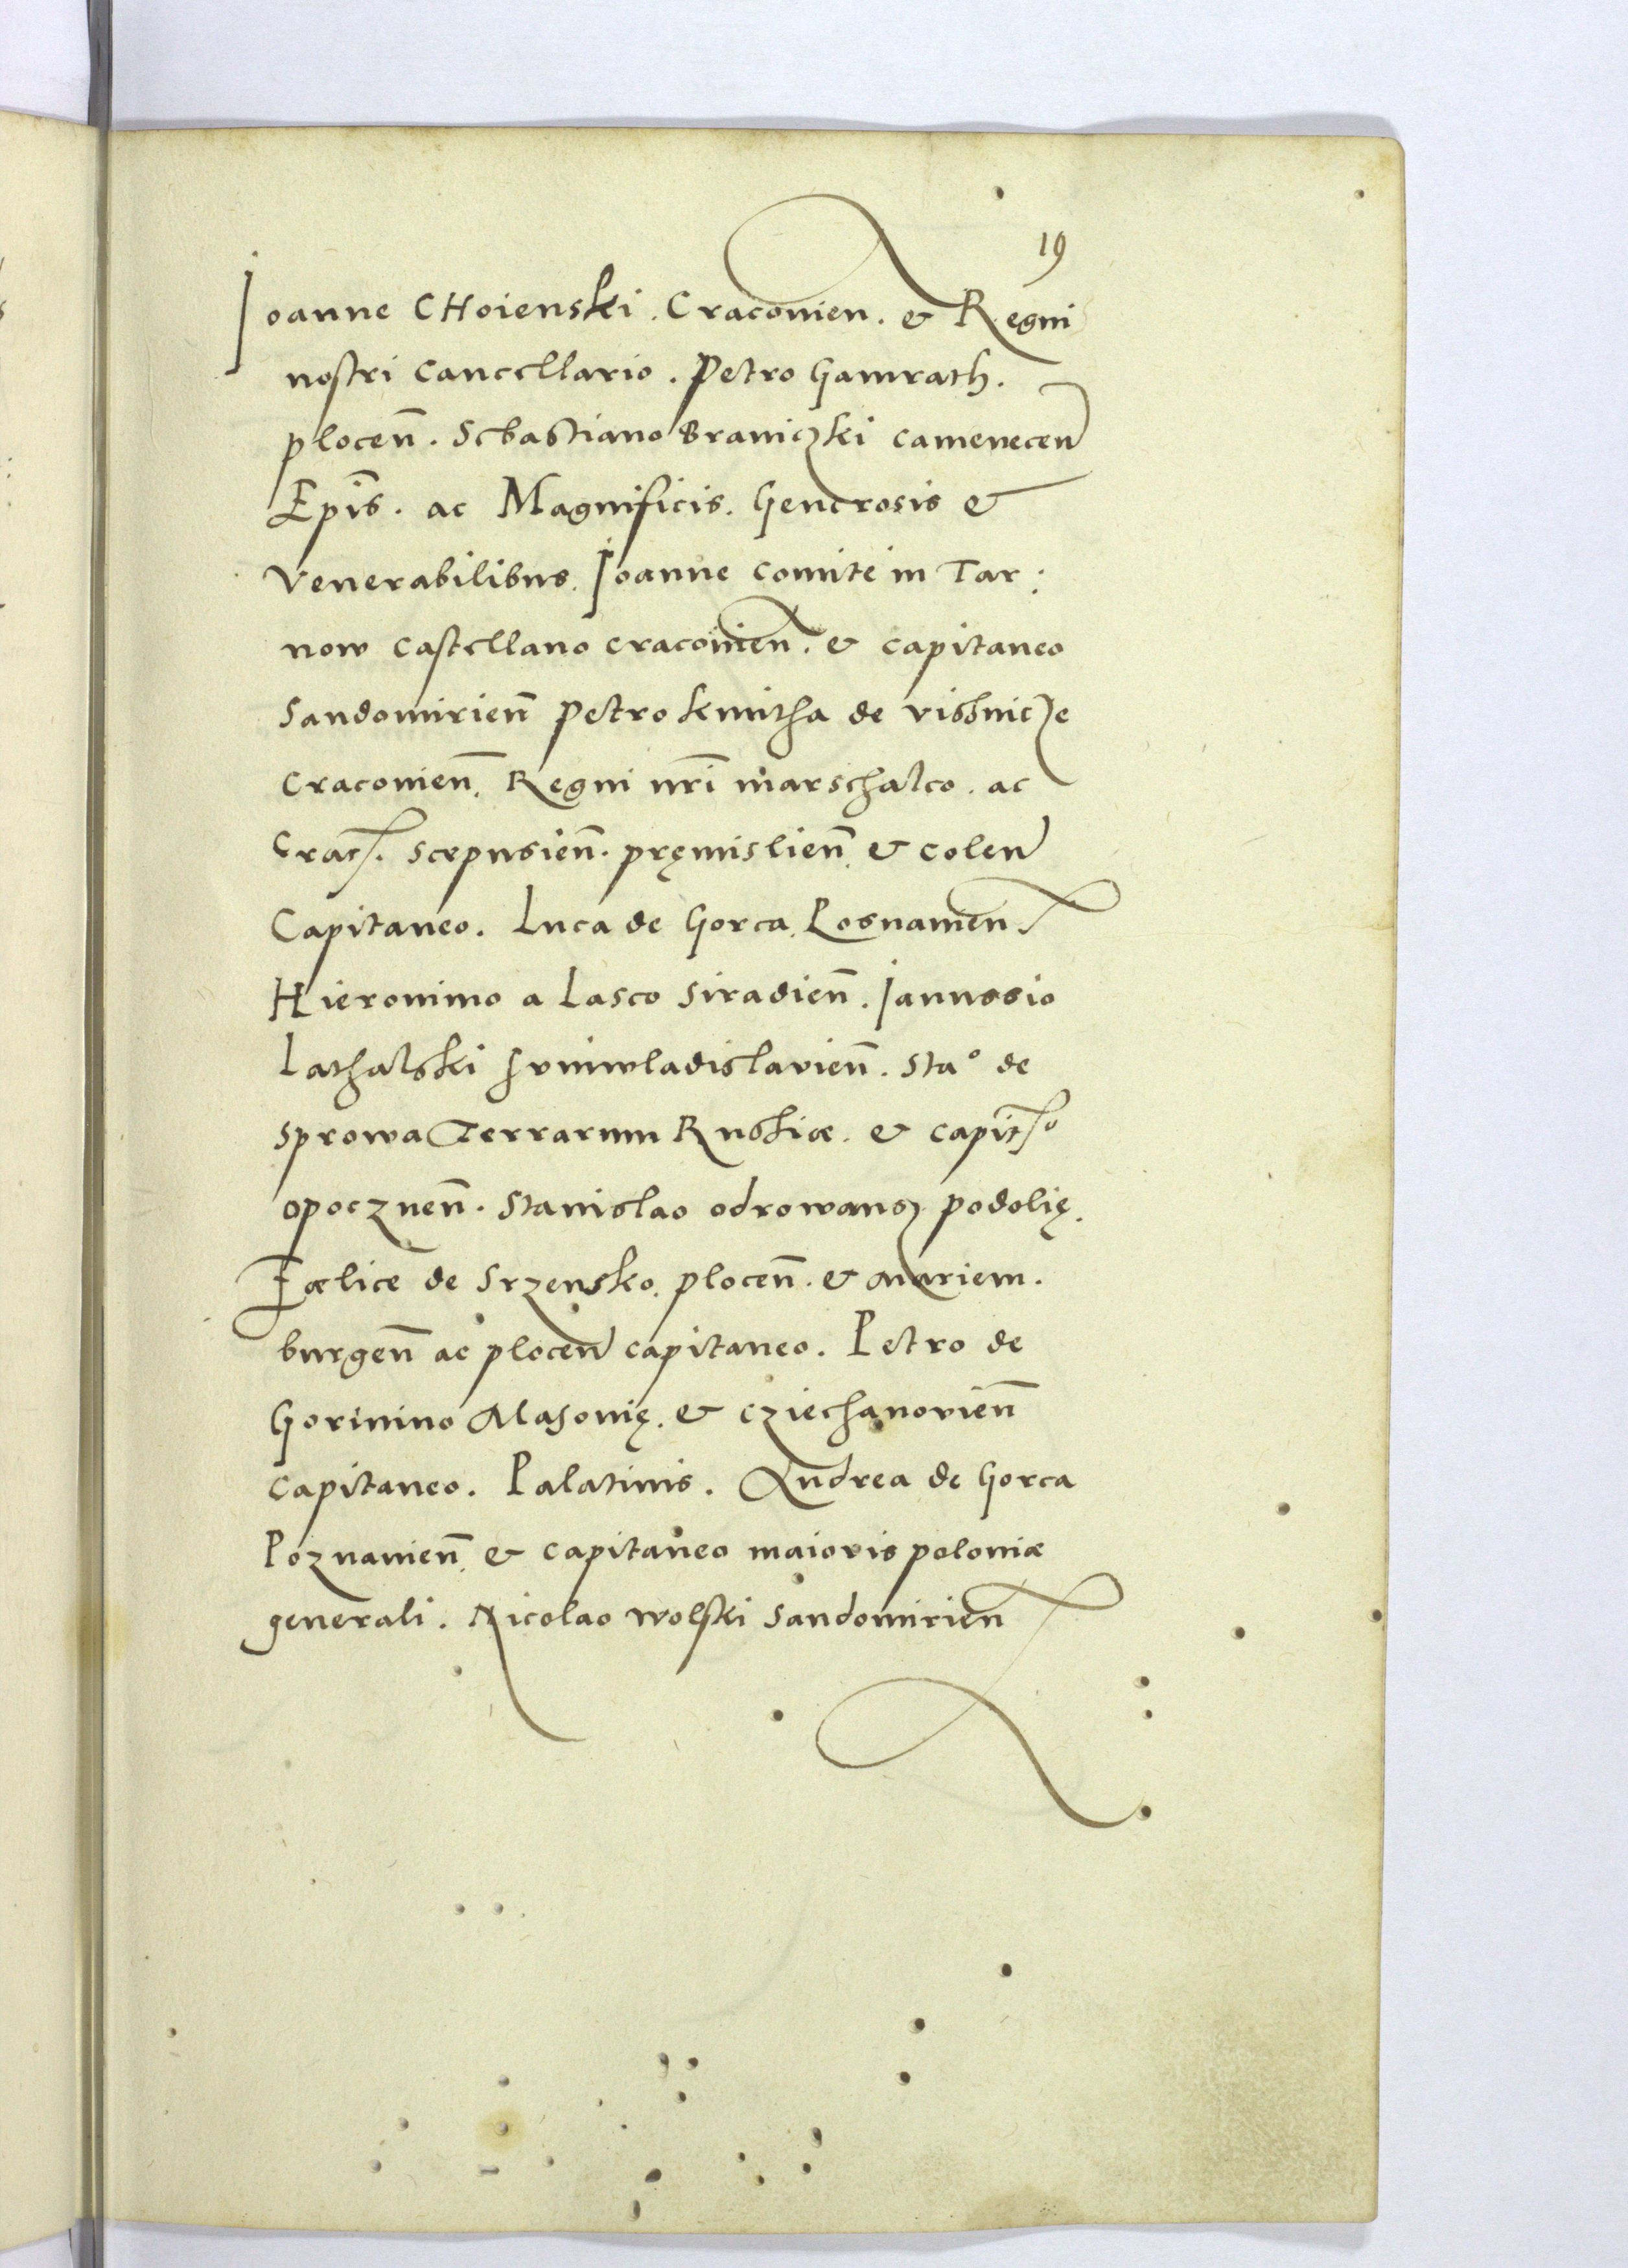 19
Ioanne CHoienski. Craconien. & Regni
nostri Cancellario. Petro Gamrath.
plocen̄. Sebastiano Braniczki camenecen
Epīs. ac Magnificis. Generosis &
Venerabilibus. Ioanne comite in Tar:
now castellano craconien̄. & capitaneo
Sandomirien̄ Petro kmitha de vissnicze
Craconien̄. Regni nr̄i marschalco. ac
Crac. scepusien̄. pręmislien̄. & colen
Capitaneo. Luca de Gorca. Posnanien
Hieronimo a Lasco Siradien̄. Iannssio
Lathalski Iuniwladislavien̄. Sta° de
sprowa Terrarum Russiæ. & capit°
opocznen̄. Stanislao odrowansz podolię.
Fælice de Srzensko. plocen̄. & Mariem.
burgen̄ ac plocen capitaneo. Petro de
Gorinino Masovię. & Cziechanovien̄
capitaneo. Palatinis. Andrea de Gorca
Poznanien̄. & capitaneo maioris poloniæ
generali. Nicolao wolski Sandomirien